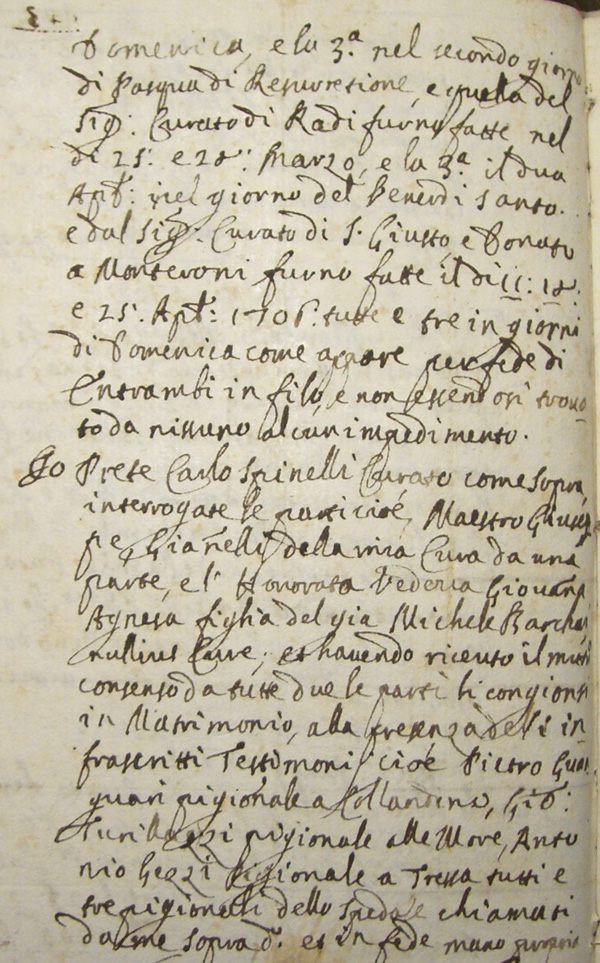 Domenica, e la 3.a nel secondo giorno
di Pasqua di Resuretione, e quella del
Sig.r Curato di Radi furno fatte nel
dì 21: e 28: Marzo, e la 3.a il dua
Apl.: nel giorno del Venerdi Santo.
e dal Sig.r Curato di S. Giusto, e Donato
a Monteroni furno fatte il dì 11: 18:
e 25. Apl.: 1706. tutte e tre in giorni
di Domenica come appare per fede di
Entrambi in filo, e non essendosi trova
to da nissuno alcun impedimento.
Io Prete Carlo Spinelli Curato come sopra,
interrogate le parti cioè, Maestro Giusep
pe Gianelli della mia Cura da una
parte, e l' Honorata Vedova Giovana
Agnesa figlia del gia Michele
nullius Cure, et havendo riceuto il mutuo
consenso da tutte due le parti li congionsi
in Matrimonio, alla presenza deli in
frascritti Testimoni cioè Pietro
pigionale a Collandina, Gio:
pigionale alle More, Anto
nio Gezzi Pigionale a Tressa tutti e
tre pigionali dello Spedale chiamati
da me sopra d.o et in fede mano propria